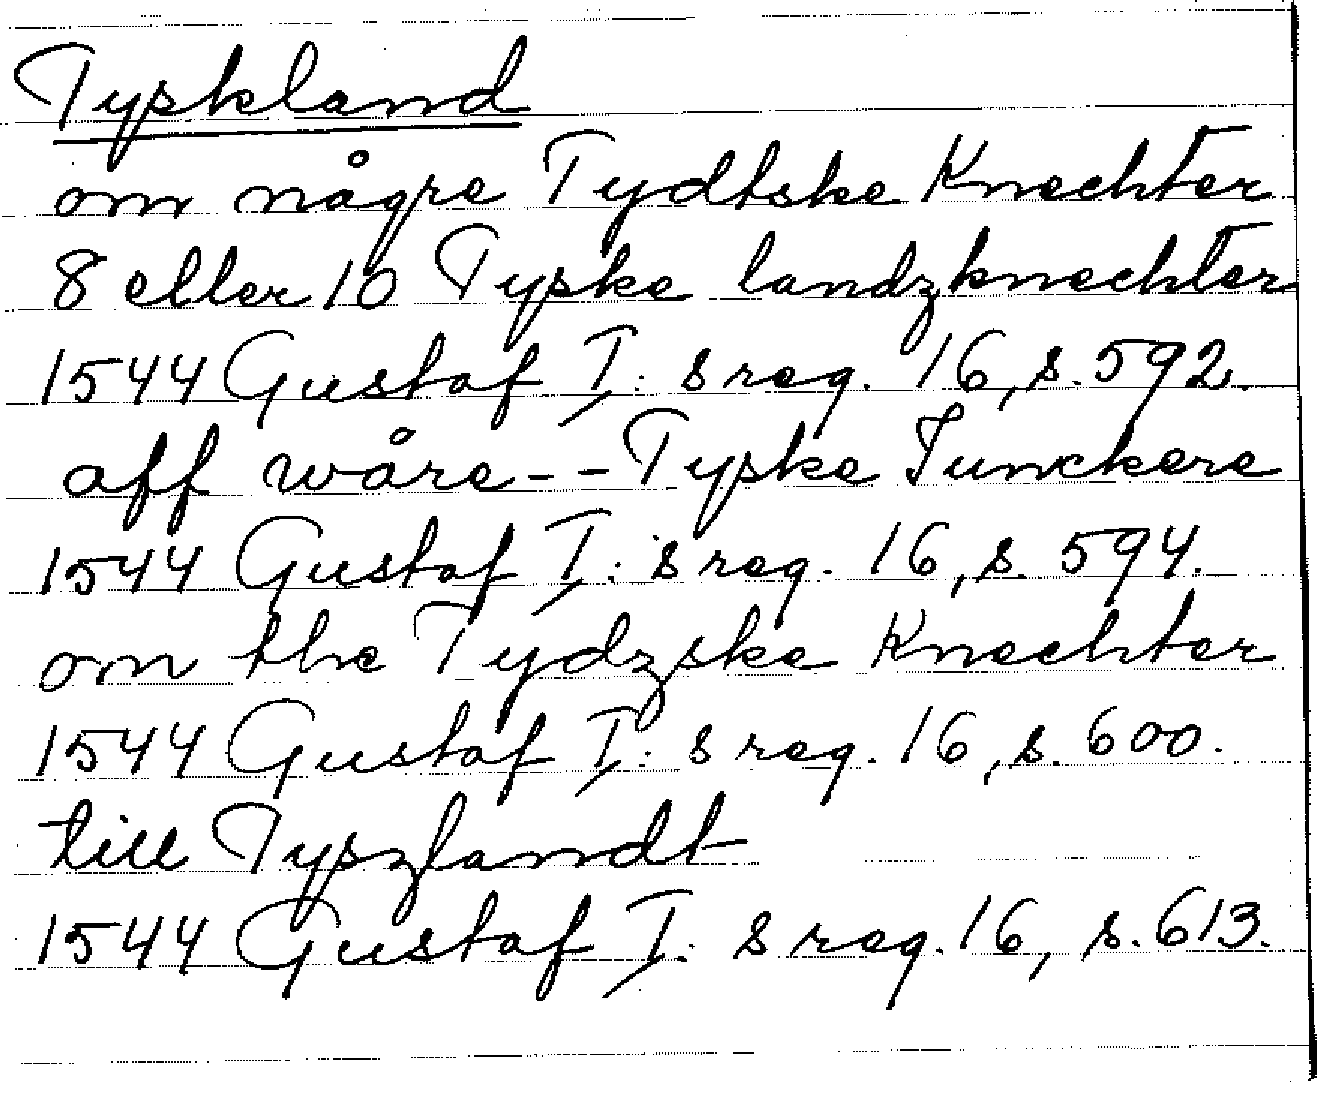 Tyskland
om någre Tydtske Knechter
8 eller 10 Tyske landzknechter
1544 Gustaf I: s reg. 16, s. 592.
aff wåre - - Tyske Junckere
1544 Gustaf I: s reg. 16, s. 594.
om the Tydzske Knechter
1544 Gustaf I: s reg. 16, s. 600.
till Tyszlandt
1544 Gustaf I: s reg. 16, s. 613.